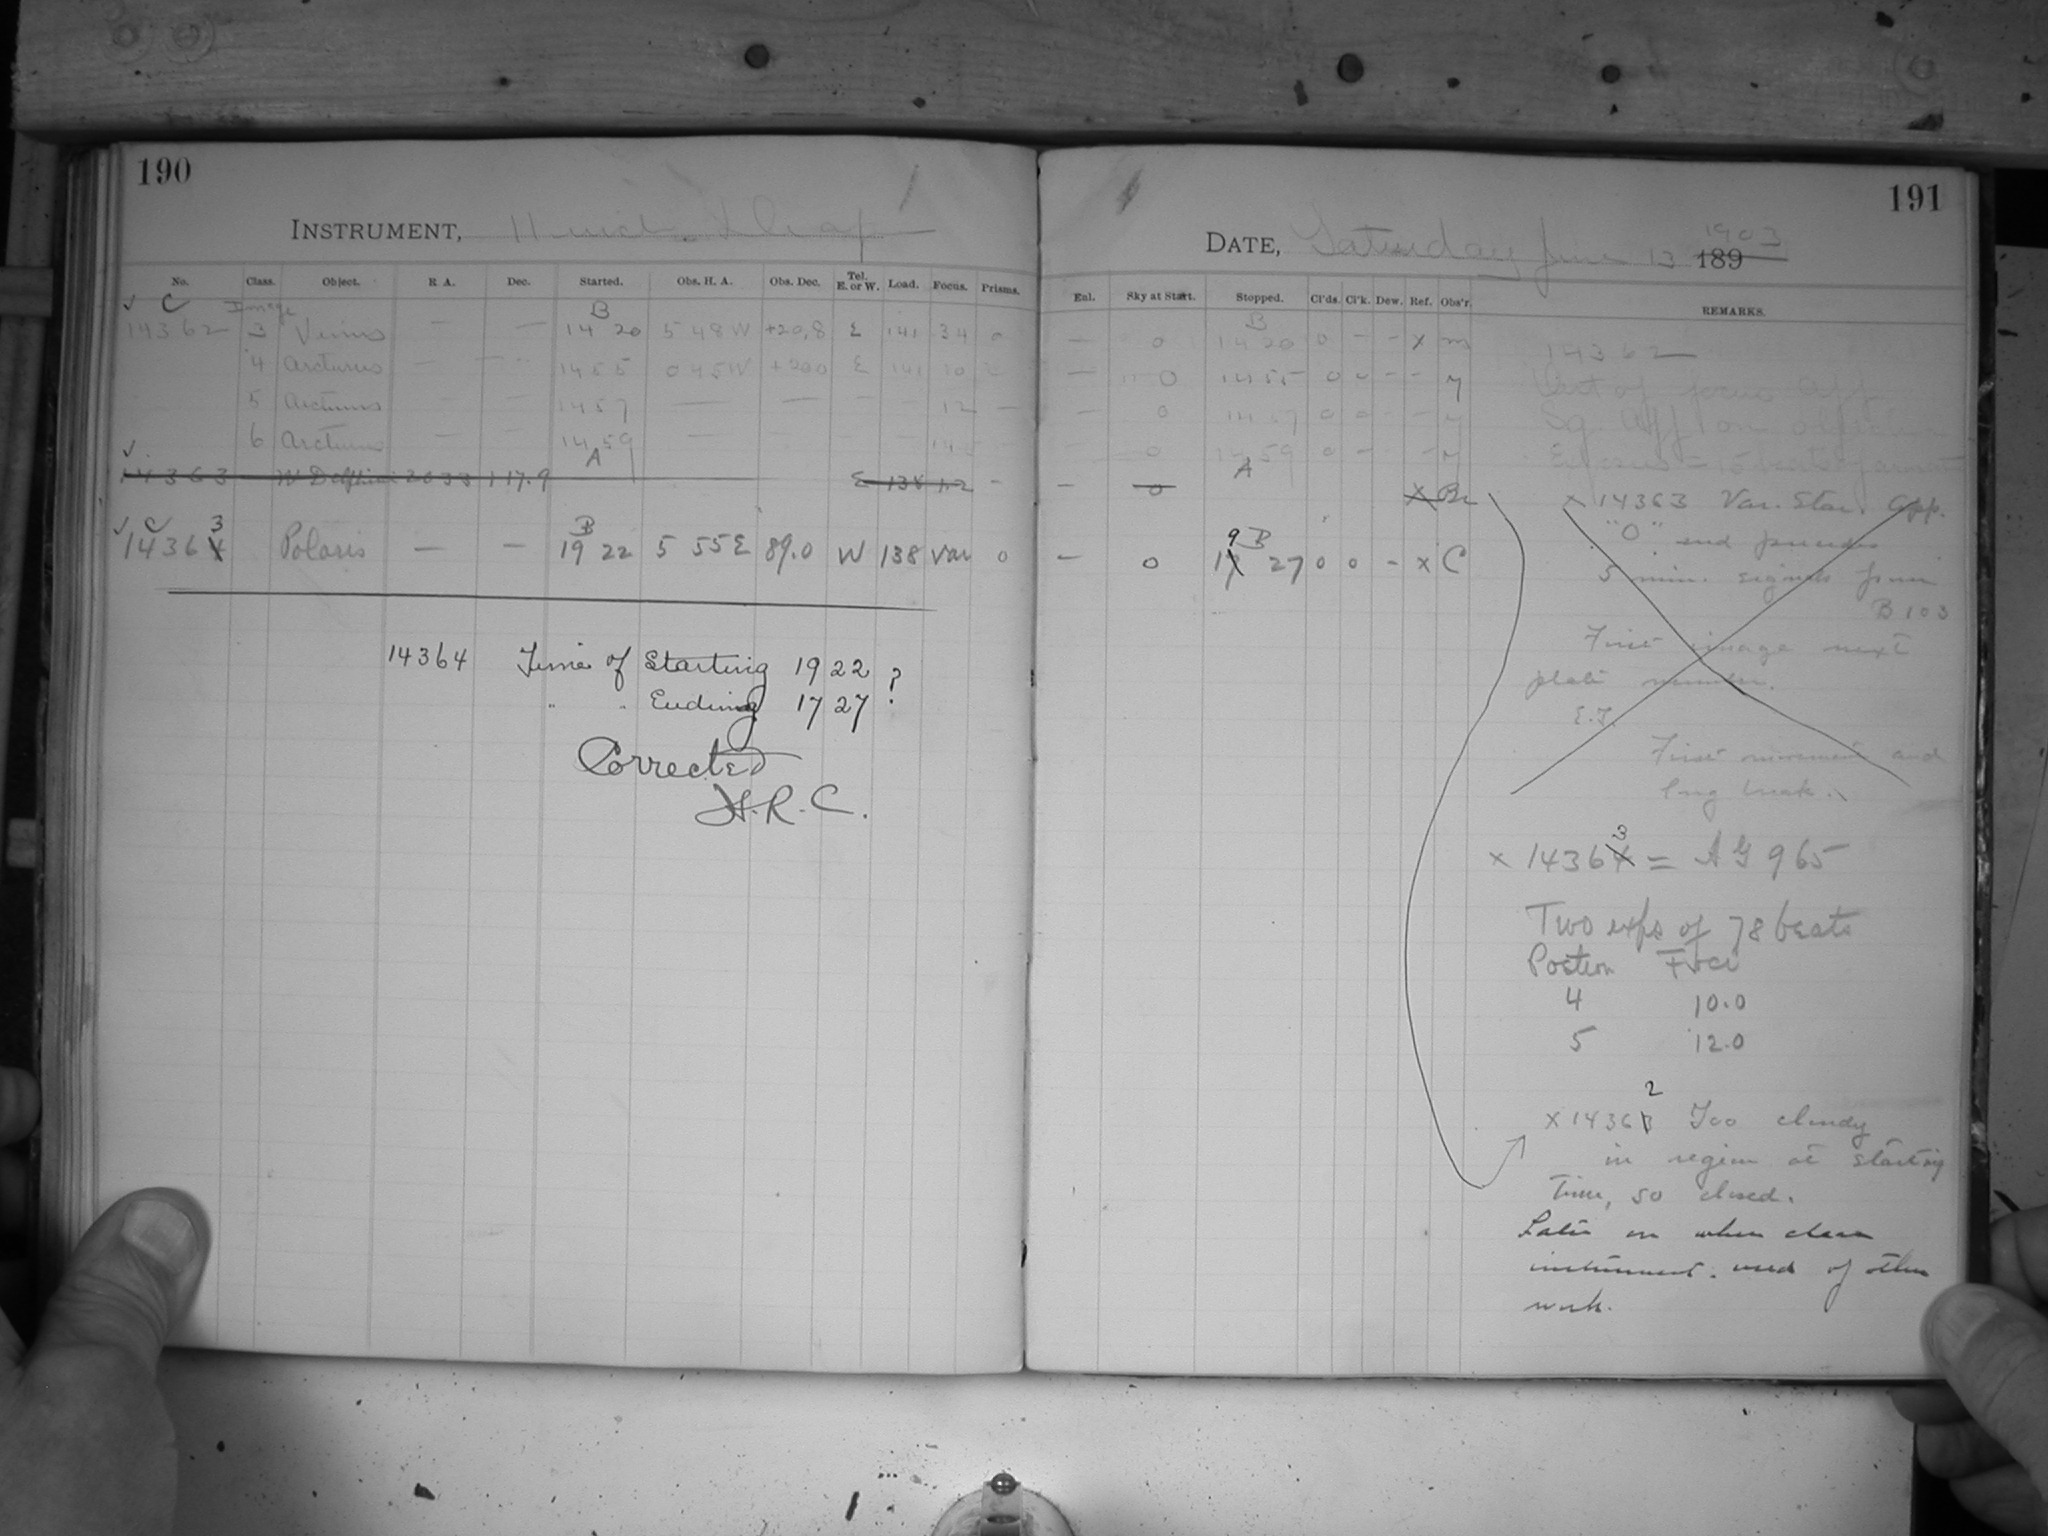 190
INSTRUMENT, 11 inch Draper
No. Class. Object. R A. Dec. Started. Obs. H. A. Obs. Dec. Tel. E. or W. Load. Focus. Prisms.
C Image B
14362 3 Venus — — 14 20 5 48 W +20,8 E 141 34 0
4 Arcturus — — 14 55 0 45 W +200 E 141 10
5 Arcturus — — 14 57 — — - - 12 —
6 Arcturus — — 14 59 — — - -
A
14363 W Delphini 2033 +17.9 E 138 -
C 3 B
14364 Polaris — — 19 22 5 55 E 89.0 W 138 Var 0
14364 Time of Starting 19 22 ?
" " Ending 17 27
Corrected
H.R.C.
191
DATE, Saturday June 13 1903 189
Enl. Sky at Start. Stopped. Cl'ds. Cl'k. Dew. Ref. Obs'r. REMARKS.
B
— 0 14 20 0 - - x m
— 0 14 55 0 0 - - m
— 0 14 57 0 0 - - m
— 0 14 59 0 - - m
A
— 0 X
9 B
— 0 17 27 0 0 - x C
14362
Out of focus App
Sq. App on objective
x 14363 Var. Star. App.
"0" end precedes
5 min. signals from
B 103
First image next
plate number.
E.J.
First movement and
long break.
3
x 14364 = A G 965
Two exps of 78 beats
Postion Foci
4 10.0
5 12.0
2
x 14363 Too cloudy
in region at starting
time, so closed.
Later on when clear
instrument used of other
work.